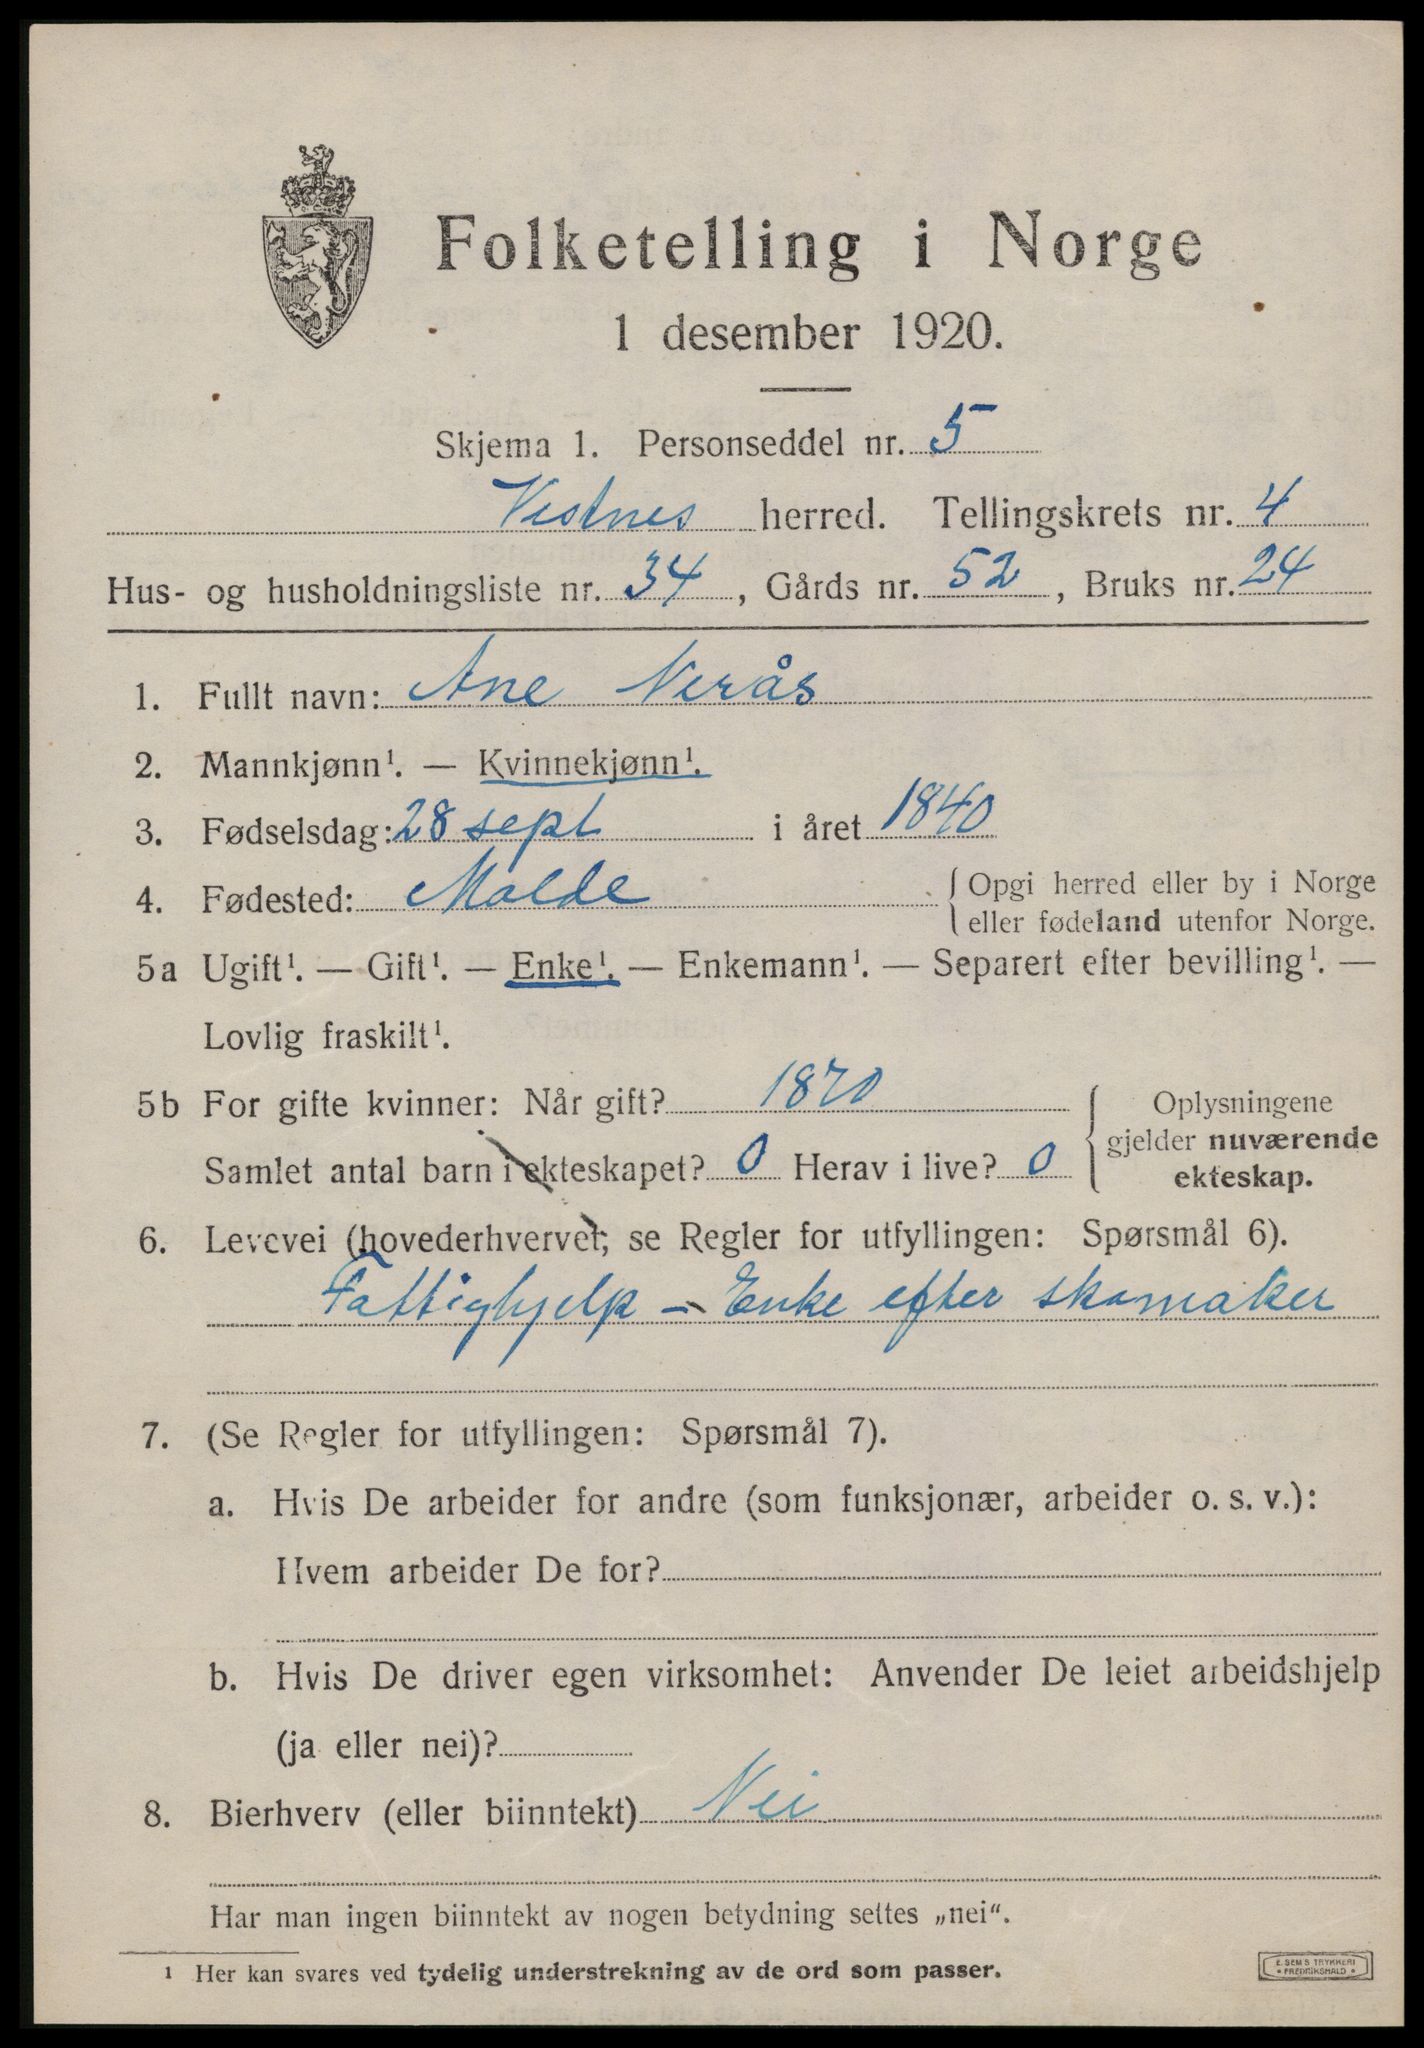 Folketelling i Norge
1 desember 1920.
Skjema 1. Personseddel nr. 5
Vestnes herred. Tellingskrets nr. 4
Hus- og husholdningsliste nr. 34, Gårds nr. 52, Bruks nr. 24
1. Fullt navn: Ane Nerås
2. Mannkjønn¹. — Kvinnekjønn¹.
3. Fødselsdag: 28 sept i året 1840
4. Fødested: Molde { Opgi herred eller by i Norge
eller fødeland utenfor Norge.
5a Ugift¹. — Gift¹. — Enke¹. — Enkemann¹. — Separert efter bevilling¹. —
Lovlig fraskilt¹.
5b For gifte kvinner: Når gift? 1870 { Oplysningene
gjelder nuværende
Samlet antal barn i ekteskapet? 0 Herav i live? 0
ekteskap.
6. Levevei (hovederhvervet, se Regler for utfyllingen: Spørsmål 6).
Fattighjelp – Enke efter skomaker
7. (Se Regler for utfyllingen: Spørsmål 7).
a. Hvis De arbeider for andre (som funksjonær, arbeider o. s. v.):
Hvem arbeider De for?
b. Hvis De driver egen virksomhet: Anvender De leiet arbeidshjelp
(ja eller nei)?
8. Bierhverv (eller biinntekt) Nei
Har man ingen biinntekt av nogen betydning settes „nei“.
¹ Her kan svares ved tydelig understrekning av de ord som passer.
E. SEM'S TRYKKERI
• FREDRIKSHALD •